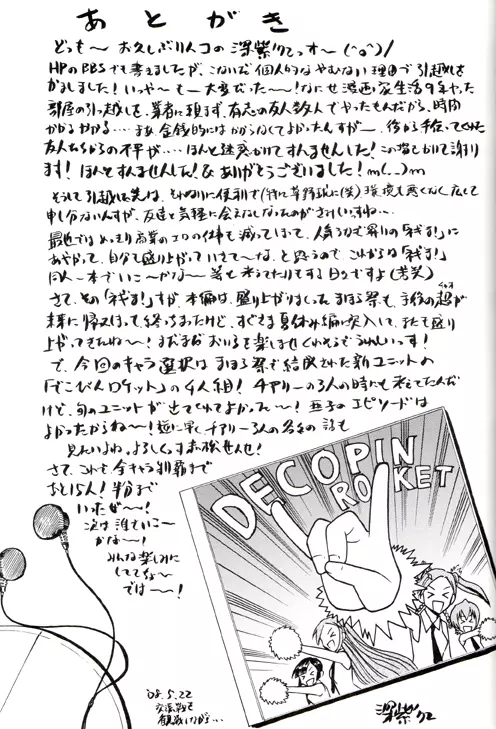 あとがき
どっも〜 お久しぶりんコの深紫クでっす〜(^o^)/
HPのBBSでも書きましたが、こないだ個人的なやむない理由で引越しを
かましました!いっや〜も〜大変だった〜!なにせ漫画家生活9年やった
部屋の引っ越しを、業者に頼まず、有志の友人数人でやったもんだから、時間
かかるかかる…まあ金銭的にはかからなくてよかったんすが〜、後から手伝ってくれた
友人たちからの不平が…ほんと迷惑かけてすいませんした!この場でかけて謝り
ます!ほんとすいませんした!&ありがとうございました!m(__)m
そうして引越し先は、それなりに便利で(特に草野球に(笑)、環境も悪くなく広くて
申し分ないんすが、友達と気軽に会えなくなったのがさみしいすね…
最近ではめっきり商業のエロの仕事も減ってしまって、人気うなぎ昇りの「ネギま!」に
あやかって、自分も盛り上がっていきて〜な、と思うので、これからは「ネギま!」
同人一本でいこ〜かな〜 等と考えてたりもする日々ですよ(苦笑)
さて、その「ネギま!」すが、本編は、盛り上がりまくった まほら祭も、予役の超が
未来に帰ってしまって、終っちまったけど、すぐさま夏休み編に突入して、またも盛り
上がってきたね〜!まだまだおいらを楽しませてくれそうでうれしいっす!
で、今回のキャラ選択は まほら祭で結成された新ユニットの
「でこぴんロケット」の4人組! チアリーの3人の時にも考えてたんだ
けど、旬のユニットが出てくれてよかって〜! 亜子のエピソードは
よかったからね〜!逆に早くチアリー3人の各々の話も
見たいよね。よろしくっす赤松せんせ!
さて、これで全キャラ制覇まで
あと15人! 半分まで
いったぜ〜!
次は誰でいこ〜
かな〜!
みんな楽しみに
しててな〜
では〜!
DECOPIN
ROCKET
'08.5.22
交流戦を
観戦しながら…
深紫ク